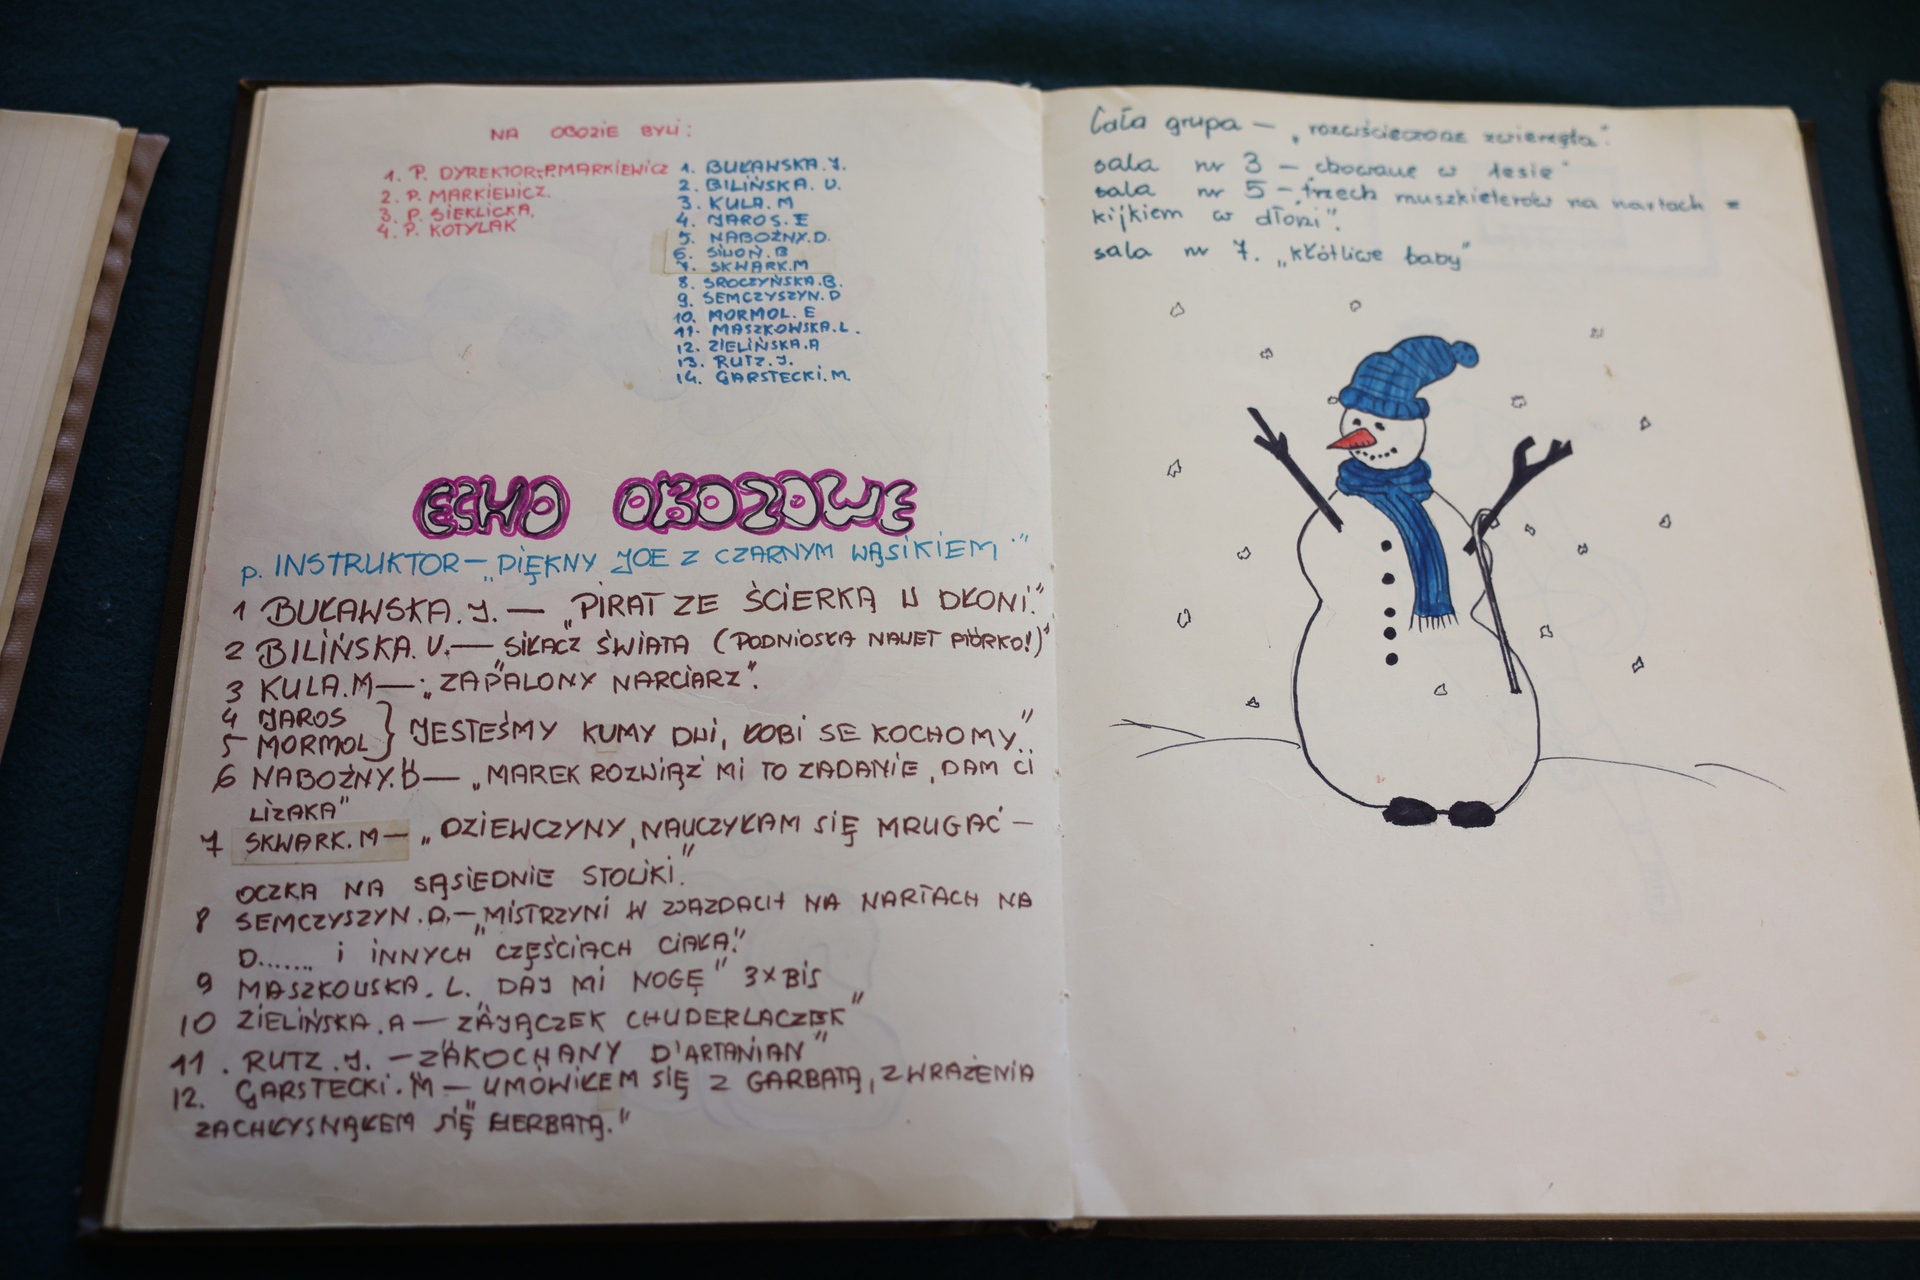 NA OBOZIE BYLI:
1. P. DYREKTOR-P.MARKIEWICZ
2. P. MARKIEWICZ.
3. P. SIEKLICKA.
4. P. KOTYLAK
1. BUŁAWSKA. J.
2. BILIŃSKA. U.
3. KULA. M
4. JAROS. E
5. NABOŻNY. D.
6. SIWOŃ. B
7. SKWARK. M
8. SROCZYŃSKA. B.
9. SEMCZYSZYN. D
10. MORMOL. E
11. MASZKOWSKA. L.
12. ZIELIŃSKA. A
13. RUTZ. J.
14. GARSTECKI. M.
ECHO OBOZOWE
p. INSTRUKTOR – „PIĘKNY JOE Z CZARNYM WĄSIKIEM"
1 BUŁAWSKA. J. — „PIRAT ZE ŚCIERKĄ W DŁONI."
2 BILIŃSKA. U. — SIŁACZ ŚWIATA (PODNIOSŁA NAWET PIÓRKO!)"
3 KULA. M — „ZAPALONY NARCIARZ".
4 JAROS
5 MORMOL } JESTEŚMY KUMY DWI, SE KOCHOMY"..
6 NABOŻNY. D — „MAREK ROZWIĄŻ MI TO ZADANIE, DAM CI
LIZAKA"
7 SKWARK. M — „DZIEWCZYNY, NAUCZYŁAM SIĘ MRUGAĆ –
OCZKA NA SĄSIEDNIE STOLIKI."
8 SEMCZYSZYN. D. – „MISTRZYNI W ZJAZDACH NA NARTACH NA
D....... I INNYCH CZĘŚCIACH CIAŁA."
9 MASZKOWSKA. L. DAJ MI NOGĘ" 3 X BIS
10 ZIELIŃSKA. A — „ZAJĄCZEK CHUDERLACZEK"
11. RUTZ. J. – „ZAKOCHANY D'ARTANIAN"
12. GARSTECKI. M — UMÓWIŁEM SIĘ Z GARBATĄ, Z WRAŻENIA
ZACHŁYSNĄŁEM SIĘ HERBATĄ."
Cała grupa – „rozwścieczone zwierzęta".
sala nr 3 – „chowane w lesie"
sala nr 5 – „trzech muszkieterów na nartach z
kijkiem w dłoni".
sala nr 7. „kłótliwe baby"